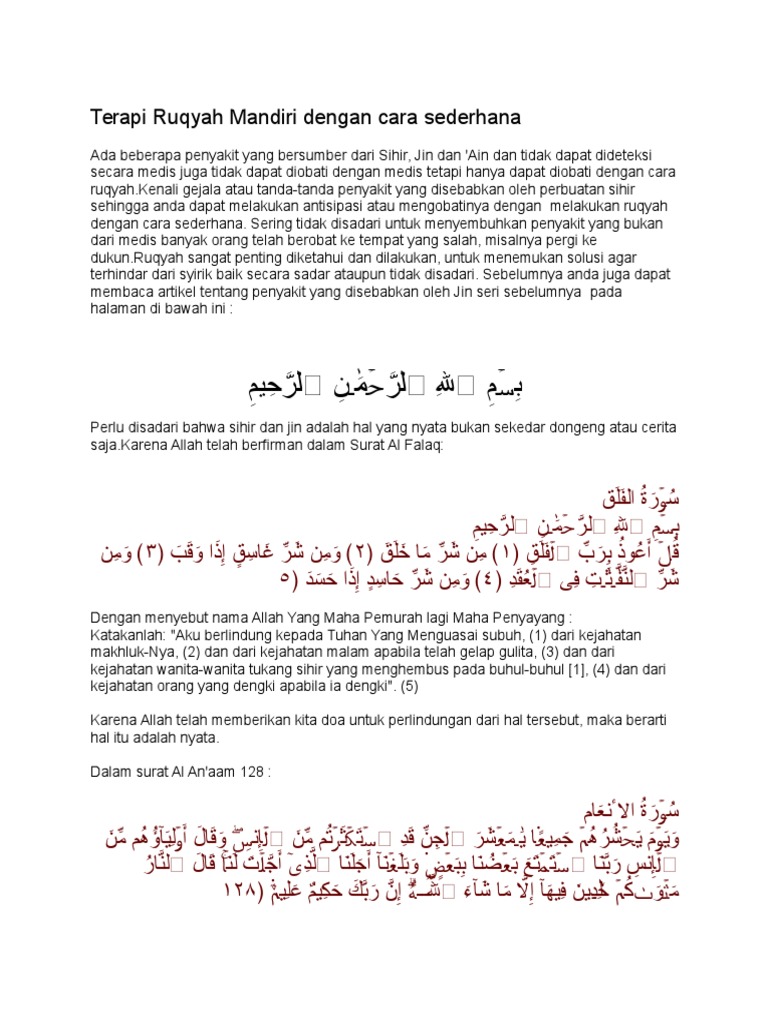 Terapi Ruqyah Mandiri dengan cara sederhana
Ada beberapa penyakit yang bersumber dari Sihir, Jin dan 'Ain dan tidak dapat dideteksi
secara medis juga tidak dapat diobati dengan medis tetapi hanya dapat diobati dengan cara
ruqyah.Kenali gejala atau tanda-tanda penyakit yang disebabkan oleh perbuatan sihir
sehingga anda dapat melakukan antisipasi atau mengobatinya dengan  melakukan ruqyah
dengan cara sederhana. Sering tidak disadari untuk menyembuhkan penyakit yang bukan
dari medis banyak orang telah berobat ke tempat yang salah, misalnya pergi ke
dukun.Ruqyah sangat penting diketahui dan dilakukan, untuk menemukan solusi agar
terhindar dari syirik baik secara sadar ataupun tidak disadari. Sebelumnya anda juga dapat
membaca artikel tentang penyakit yang disebabkan oleh Jin seri sebelumnya  pada
halaman di bawah ini :
بِسۡمِ ▯للهِ ▯لرَّحۡمَٰنِ ▯لرَّحِيمِ
Perlu disadari bahwa sihir dan jin adalah hal yang nyata bukan sekedar dongeng atau cerita
saja.Karena Allah telah berfirman dalam Surat Al Falaq:
سُوۡرَةُ الفَلَق
بِسۡمِ ▯للهِ ▯لرَّحۡمَٰنِ ▯لرَّحِيمِ
قُلۡ أَعُوذُ بِرَبِّ ▯لۡفَلَقِ (١) مِن شَرِّ مَا خَلَقَ (٢) وَمِن شَرِّ غَاسِقٍ إِذَا وَقَبَ (٣) وَمِن
شَرِّ ▯لنَّفَّـٰثَـٰتِ فِى ▯لۡعُقَدِ (٤) وَمِن شَرِّ حَاسِدٍ إِذَا حَسَدَ (٥
Dengan menyebut nama Allah Yang Maha Pemurah lagi Maha Penyayang :
Katakanlah: "Aku berlindung kepada Tuhan Yang Menguasai subuh, (1) dari kejahatan
makhluk-Nya, (2) dan dari kejahatan malam apabila telah gelap gulita, (3) dan dari
kejahatan wanita-wanita tukang sihir yang menghembus pada buhul-buhul [1], (4) dan dari
kejahatan orang yang dengki apabila ia dengki". (5)
Karena Allah telah memberikan kita doa untuk perlindungan dari hal tersebut, maka berarti
hal itu adalah nyata.
Dalam surat Al An'aam 128 :
سُوۡرَةُ الاٴنعَام
وَيَوۡمَ يَحۡشُرُهُمۡ جَمِيعً۬ا يَـٰمَعۡشَرَ ▯لۡجِنِّ قَدِ ▯سۡتَكۡثَرۡتُم مِّنَ ▯لۡإِنسِ‌ۖ وَقَالَ أَوۡلِيَآؤُهُم مِّنَ
▯لۡإِنسِ رَبَّنَا ▯سۡتَمۡتَعَ بَعۡضُنَا بِبَعۡضٍ۬ وَبَلَغۡنَآ أَجَلَنَا ▯لَّذِىٓ أَجَّلۡتَ لَنَا‌ۚ قَالَ ▯لنَّارُ
مَثۡوَٮٰكُمۡ خَـٰلِدِينَ فِيهَآ إِلَّا مَا شَآءَ ▯للَّهُ‌ۗ إِنَّ رَبَّكَ حَكِيمٌ عَلِيمٌ۬ (١٢٨